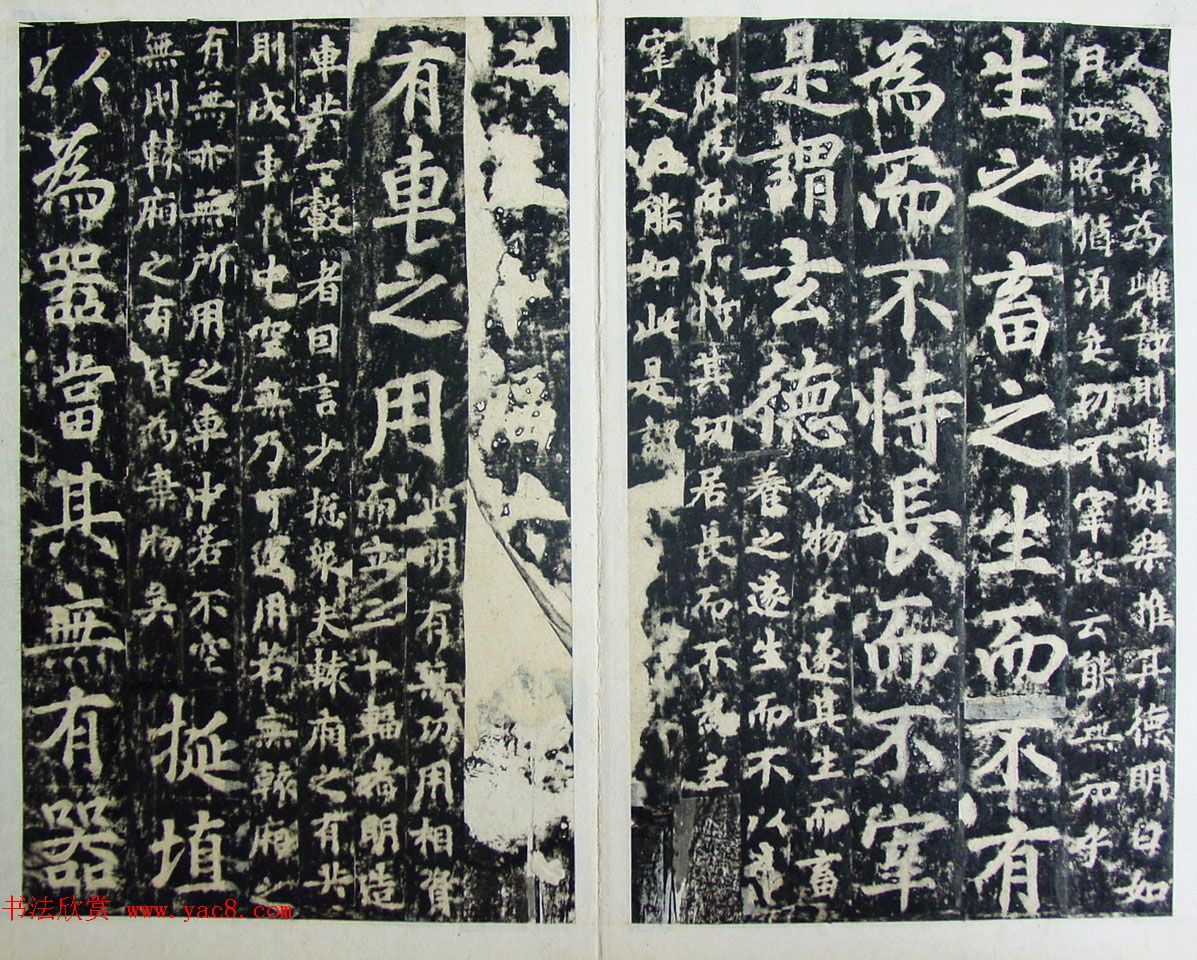 休為雌靜則萬姓樂推其德明白如
日四照猶須忘功不宰故云能無知乎
生之畜之生而不有
為而不恃長而不宰
是謂玄德
令物各遂其生而畜
養之遂生而不以為
而不恃其功居長而不為主
宰人君能如此是
有車之用
此明有無功用相資
而立三十輻者明造
車共一轂者因言少總眾夫轅廂之有共
則成車車中空無乃可運用若無轅廂之
有無亦無所用之車中若不空
無則轅廂之有皆為棄物矣
挻埴
以為器當其無有器
书法欣赏 www.yac8.com